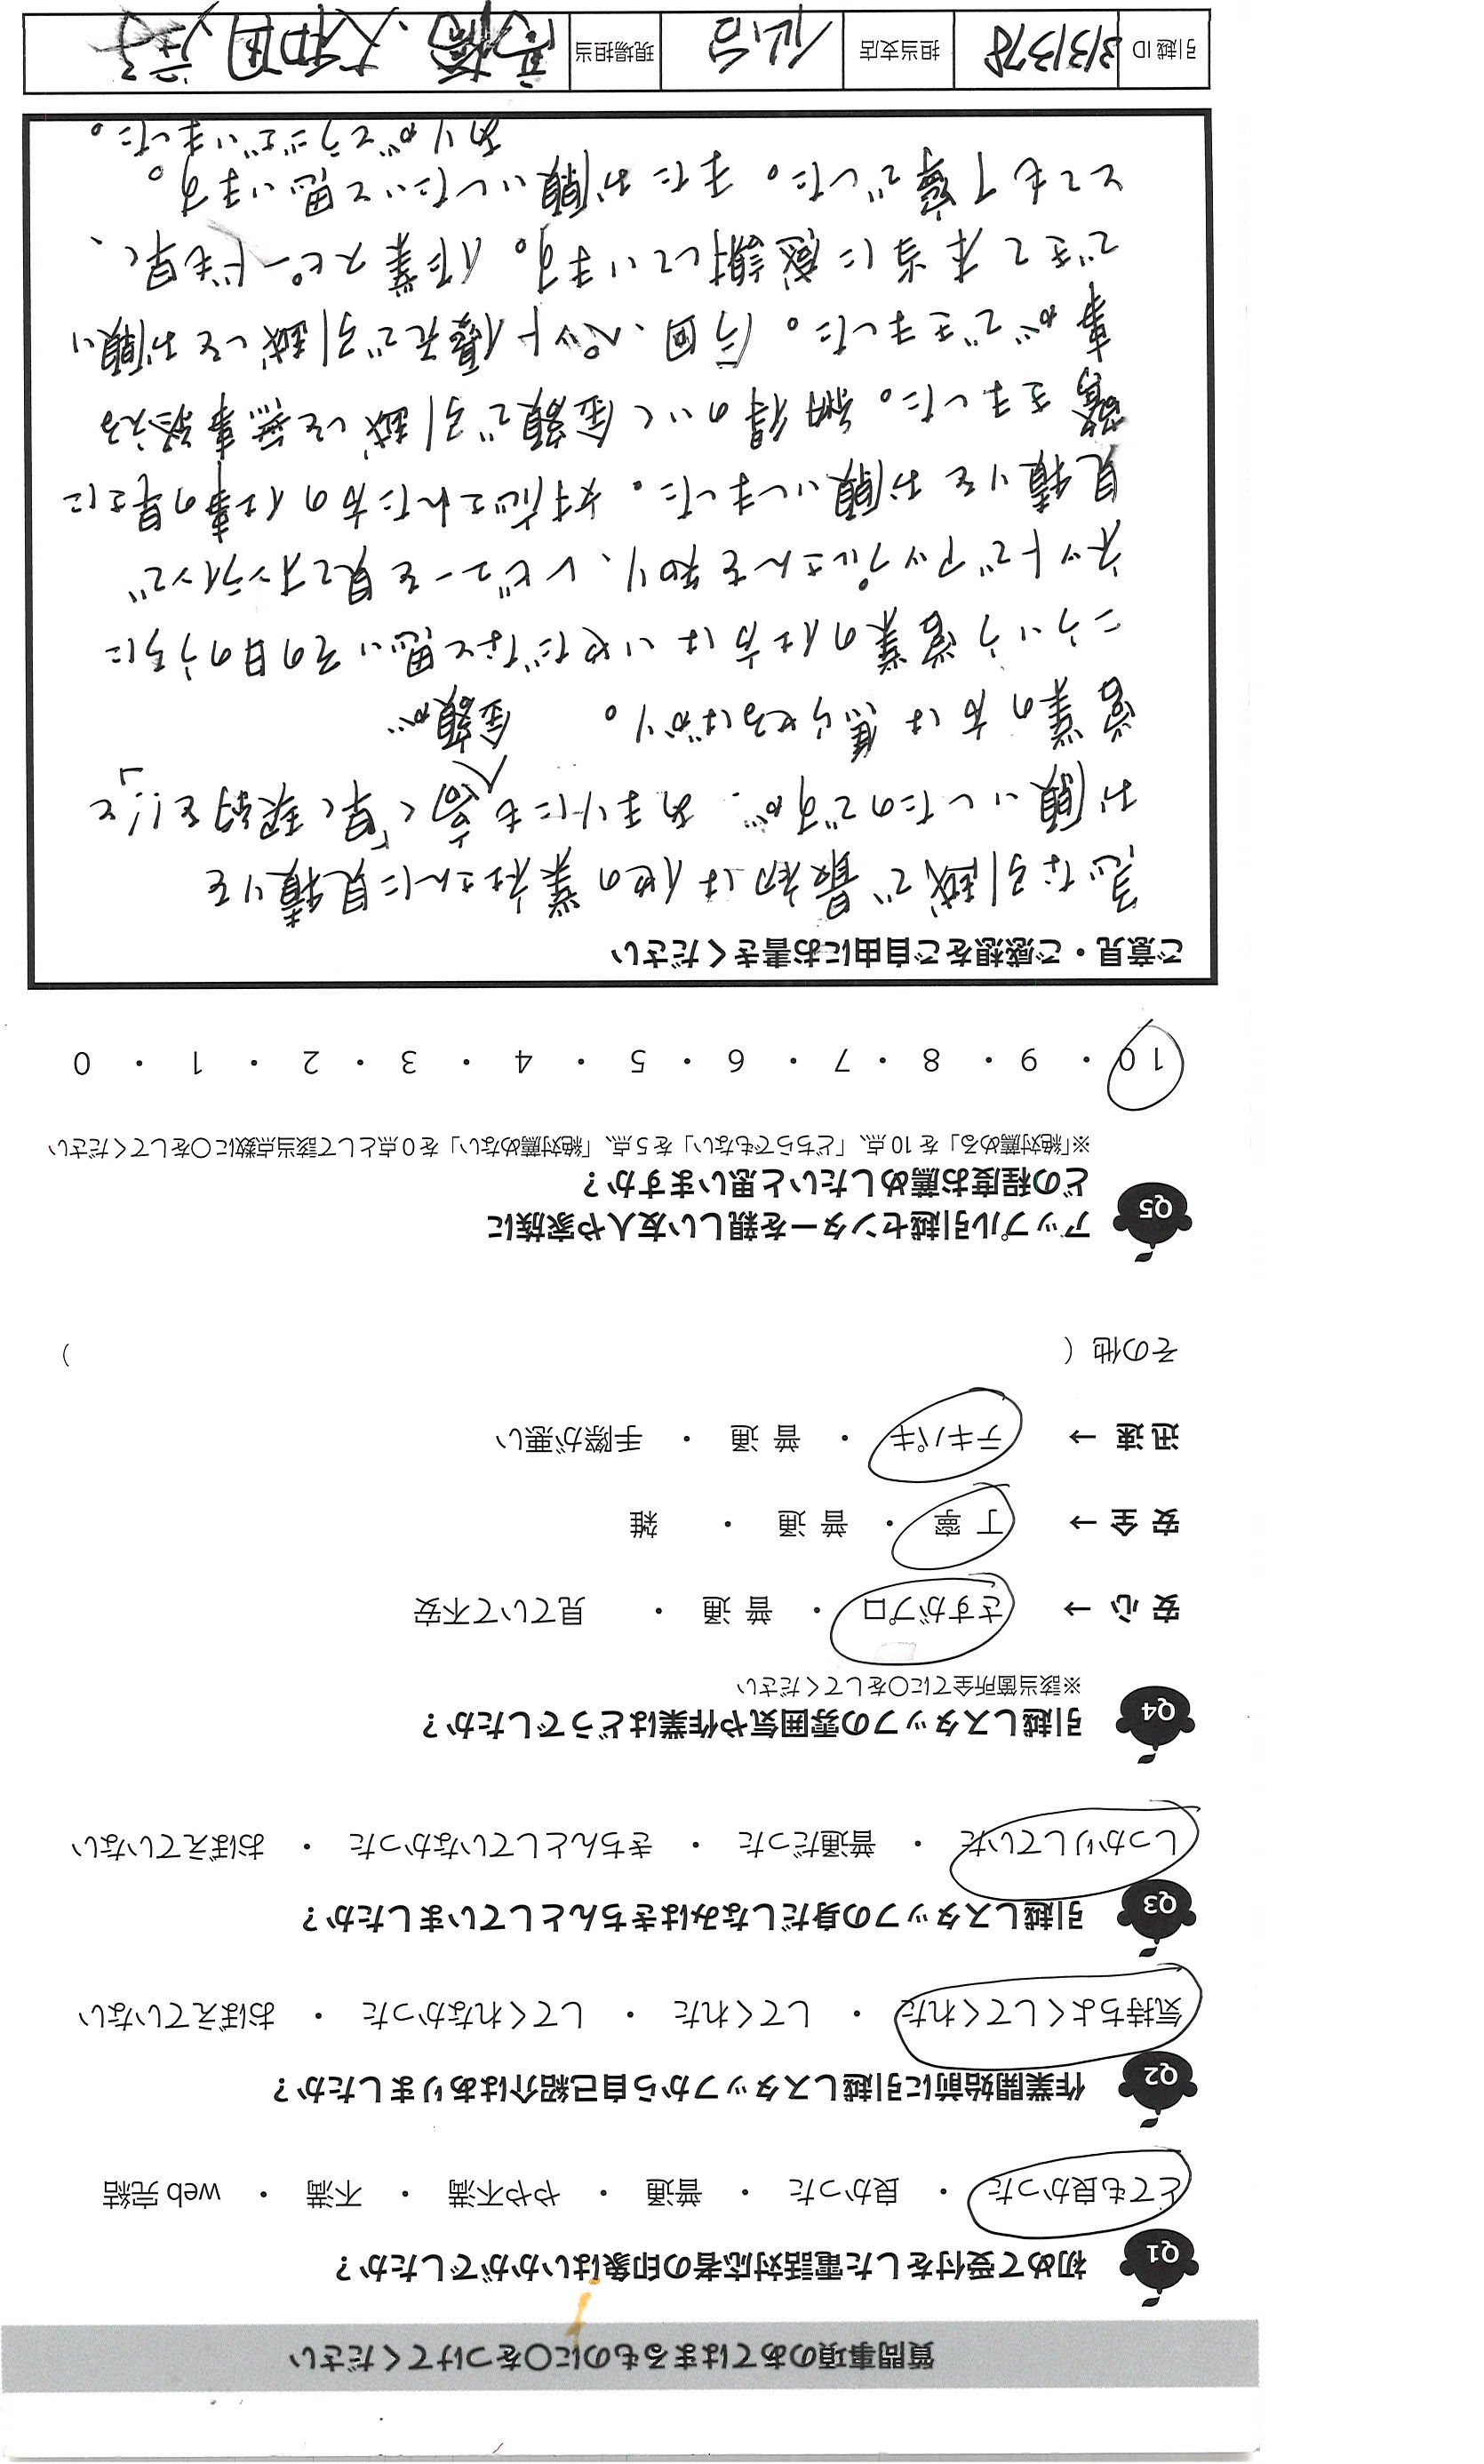 質問事項のあてはまるものに〇をつけてください
Q1 初めて受付をした電話対応者の印象はいかがでしたか？
とても良かった ・ 良かった ・ 普通 ・ やや不満 ・ 不満 ・ web 完結
Q2 作業開始前に引越しスタッフから自己紹介はありましたか？
気持ちよくしてくれた ・ してくれた ・ してくれなかった ・ おぼえていない
Q3 引越しスタッフの身だしなみはきちんとしていましたか？
しっかりしていた ・ 普通だった ・ きちんとしていなかった ・ おぼえていない
Q4 引越しスタッフの雰囲気や作業はどうでしたか？
※該当箇所全てに〇をしてください
安 心 → さすがプロ ・ 普 通 ・ 見ていて不安
安 全 → 丁 寧 ・ 普 通 ・ 雑
迅 速 → テキパキ ・ 普 通 ・ 手際が悪い
その他（ ）
Q5 アップル引越センターを親しい友人や家族に
どの程度お薦めしたいと思いますか？
※「絶対薦める」を 10 点、「どちらでもない」を 5 点、「絶対薦めない」を 0 点として該当点数に〇をしてください
10 ・ 9 ・ 8 ・ 7 ・ 6 ・ 5 ・ 4 ・ 3 ・ 2 ・ 1 ・ 0
ご意見・ご感想をご自由にお書きください
急な引越で最初は他の業社さんに見積りを
お願いしたのですが、あまりにも高く「早く契約を!!」と
営業の方は焦らせるばかり。 金額が
こういう営業の仕方はいやだなと思いその日のうちに
ネットでアップルさんを知り、レビューを見てオンラインで
見積りをお願いしました。対応された方の仕事の早さに
驚きました。納得のいく金額で引越しを無事終える
事ができました。今回、ペット優先で引越しをお願い
できて本当に感謝しています。作業スピードも早く、
とても丁寧でした。またお願いしたいと思います。
ありがとうございました。
引越 ID 3131378 担当支店 仙台 現場担当 高橋、大和田、